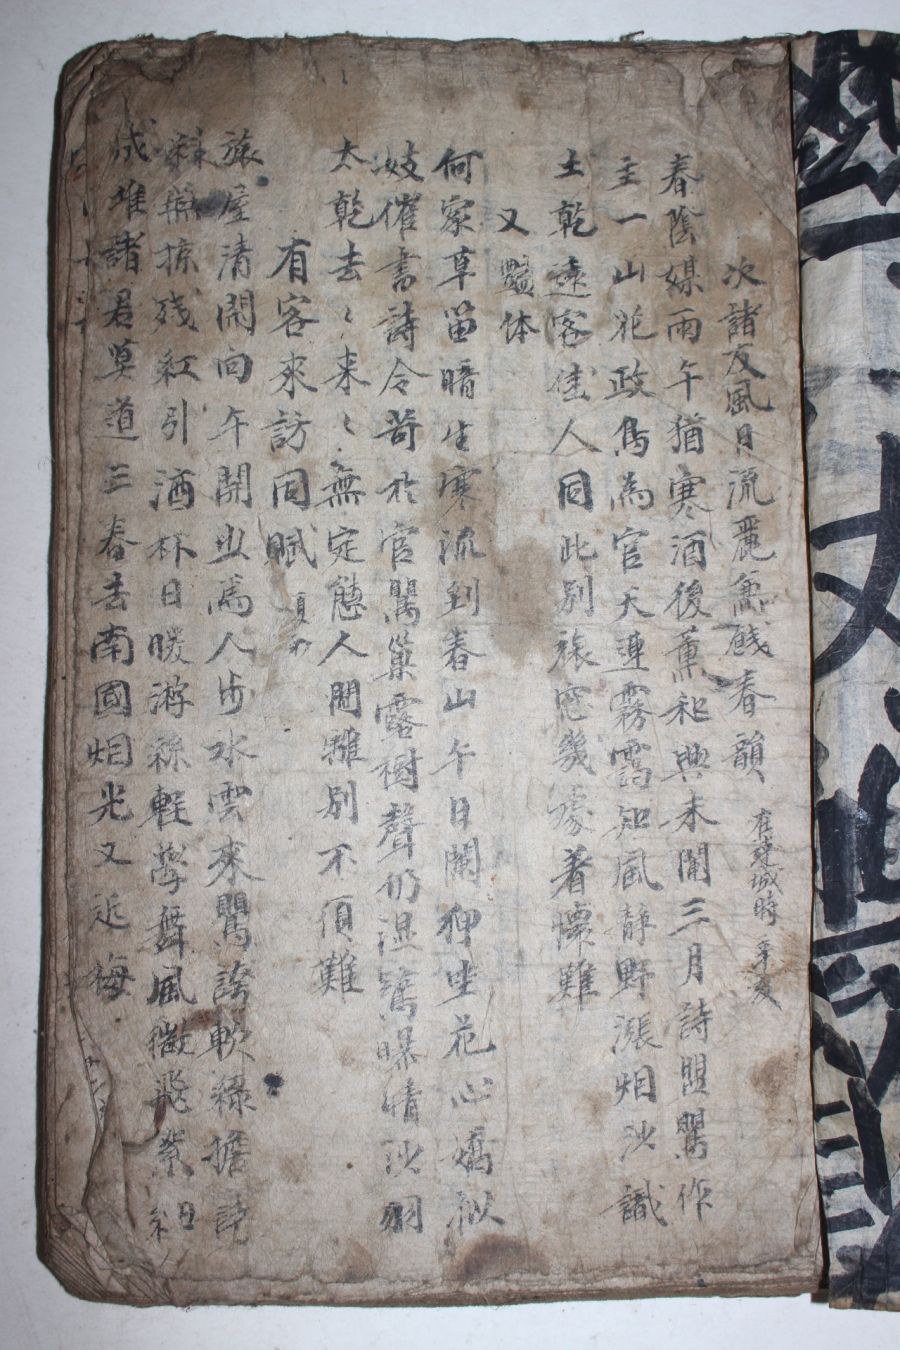 次諸友風日流麗兼餞春韻 在達城時 辛亥
春陰媒雨午猶寒酒後薰和興未闌三月詩盟鶯作
主一山花政鳥為官天連霧靄知風靜野漲烟沙識
土乾遠客佳人同此別旅窓幾處着懷難
又艶体
何家草笛暗生寒流到春山午日闌狎坐花心嬌似
妓催書詩令苛於官鶯巢露樹聲仍湿鷺曝晴沙羽
太乾去〻來〻無定態人間離別不須難
有客來訪同賦
旅屋清閑向午開出為人步水雲來鶯
科無掠殘紅引酒杯日暖游絲輕學舞風微飛絮細
成堆諸君莫道三春去南國烟光又近梅